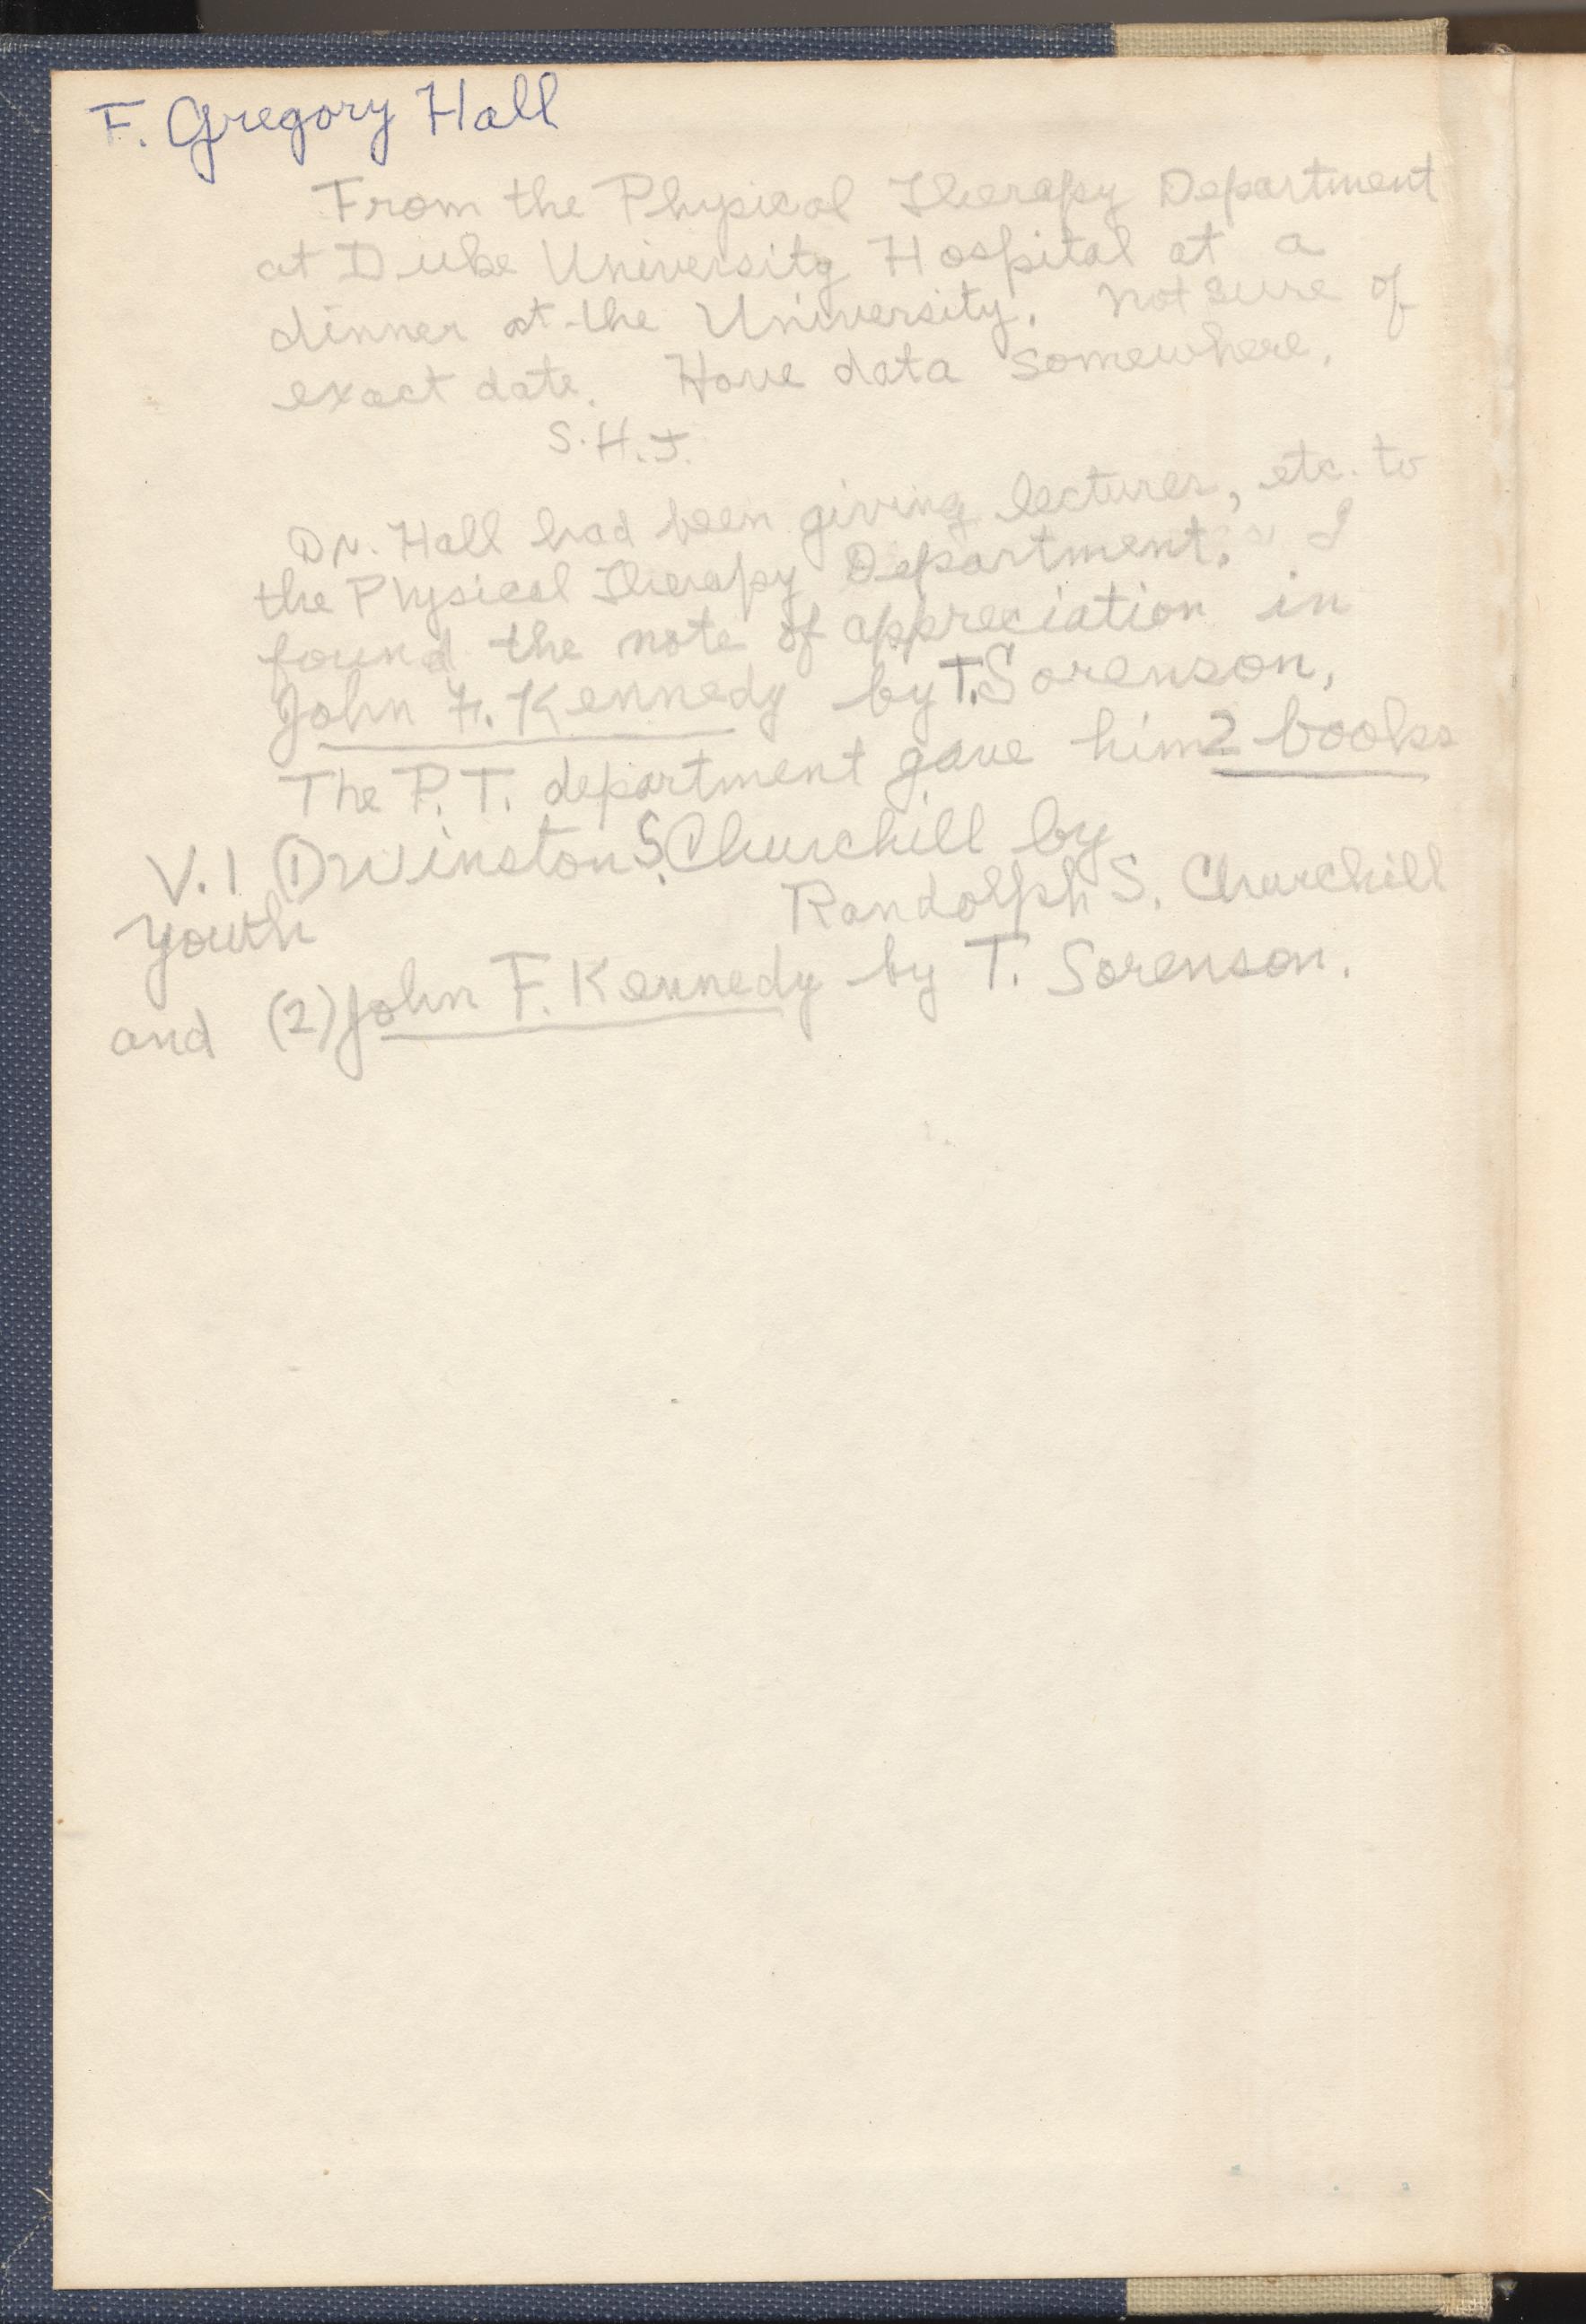 F. Gregory Hall
From the Physical Therapy Department
at Duke University Hospital at a
dinner at the University. Not sure of
exact date. Have data somewhere.
S.H.J.
Dr. Hall had been giving lectures, etc. to
the Physical Therapy Department. I
found the note of appreciation in
John F. Kennedy by T. Sorenson.
The P.T. department gave him 2 books
V.1 (1) Winston S. Churchill by
Youth Randolph S. Churchill
and (2) John F. Kennedy by T. Sorenson.